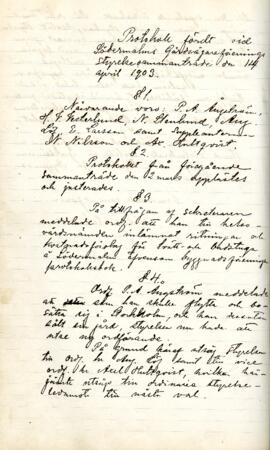 Protokoll fördt vid
Södermalms Gårdsägareförenings
styrelsesammanträde den 14
april 1903.
§ 1.
Närvarande voro: P. A. Nyström,
N. Stenlund, Aug.
Löf, E. Larsson samt suppleanterna
W. Nilsson och Ax. Hultqvist.
§ 2.
Protokollet från föregående
sammanträde den 12 mars upplästes
och justerades.
§ 3.
På tillfrågan af sekreteraren
meddelade ordf. att han till helso-
vårdsnämnden inlämnat ritning och
kostnadsförslag för
å Södermalm äfvensom byggnadsföreningens
protokollsbok.
§ 4.
Ordf. P. A. Nyström meddelade
att som han skulle flytta och bo-
sätta sig i Stockholm, och han dessutom
sålt sin gård, styrelsen nu hade att
utse ny ordförande.
På grund häraf utsåg styrelsen
till ordf. hr Aug. Löf samt till vice
ordf. hr Axel Hultqvist, hvilken
intill ordinarie styrelse-
ledamot till nästa val.